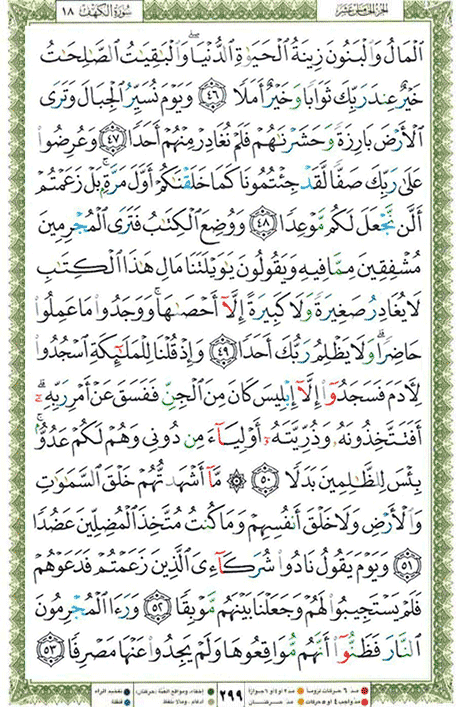 الجزء الخامس عشر
سورة الكهف ١٨
ٱلْمَالُ وَٱلْبَنُونَ زِينَةُ ٱلْحَيَوٰةِ ٱلدُّنْيَا ۖ وَٱلْبَـٰقِيَـٰتُ ٱلصَّـٰلِحَـٰتُ
خَيْرٌ عِندَ رَبِّكَ ثَوَابًا وَخَيْرٌ أَمَلًا ٤٦ وَيَوْمَ نُسَيِّرُ ٱلْجِبَالَ وَتَرَى
ٱلْأَرْضَ بَارِزَةً وَحَشَرْنَـٰهُمْ فَلَمْ نُغَادِرْ مِنْهُمْ أَحَدًا ٤٧ وَعُرِضُوا۟
عَلَىٰ رَبِّكَ صَفًّا لَّقَدْ جِئْتُمُونَا كَمَا خَلَقْنَـٰكُمْ أَوَّلَ مَرَّةٍۭ ۚ بَلْ زَعَمْتُمْ
أَلَّن نَّجْعَلَ لَكُم مَّوْعِدًا ٤٨ وَوُضِعَ ٱلْكِتَـٰبُ فَتَرَى ٱلْمُجْرِمِينَ
مُشْفِقِينَ مِمَّا فِيهِ وَيَقُولُونَ يَـٰوَيْلَتَنَا مَالِ هَـٰذَا ٱلْكِتَـٰبِ
لَا يُغَادِرُ صَغِيرَةً وَلَا كَبِيرَةً إِلَّآ أَحْصَىٰهَا ۚ وَوَجَدُوا۟ مَا عَمِلُوا۟
حَاضِرًا ۗ وَلَا يَظْلِمُ رَبُّكَ أَحَدًا ٤٩ وَإِذْ قُلْنَا لِلْمَلَـٰٓئِكَةِ ٱسْجُدُوا۟
لِـَٔادَمَ فَسَجَدُوٓا۟ إِلَّآ إِبْلِيسَ كَانَ مِنَ ٱلْجِنِّ فَفَسَقَ عَنْ أَمْرِ رَبِّهِۦٓ ۗ
أَفَتَتَّخِذُونَهُۥ وَذُرِّيَّتَهُۥٓ أَوْلِيَآءَ مِن دُونِى وَهُمْ لَكُمْ عَدُوٌّۢ ۚ
بِئْسَ لِلظَّـٰلِمِينَ بَدَلًا ٥٠ ۞ مَّآ أَشْهَدتُّهُمْ خَلْقَ ٱلسَّمَـٰوَٰتِ
وَٱلْأَرْضِ وَلَا خَلْقَ أَنفُسِهِمْ وَمَا كُنتُ مُتَّخِذَ ٱلْمُضِلِّينَ عَضُدًا
٥١ وَيَوْمَ يَقُولُ نَادُوا۟ شُرَكَآءِىَ ٱلَّذِينَ زَعَمْتُمْ فَدَعَوْهُمْ
فَلَمْ يَسْتَجِيبُوا۟ لَهُمْ وَجَعَلْنَا بَيْنَهُم مَّوْبِقًا ٥٢ وَرَءَا ٱلْمُجْرِمُونَ
ٱلنَّارَ فَظَنُّوٓا۟ أَنَّهُم مُّوَاقِعُوهَا وَلَمْ يَجِدُوا۟ عَنْهَا مَصْرِفًا ٥٣
٢٩٩